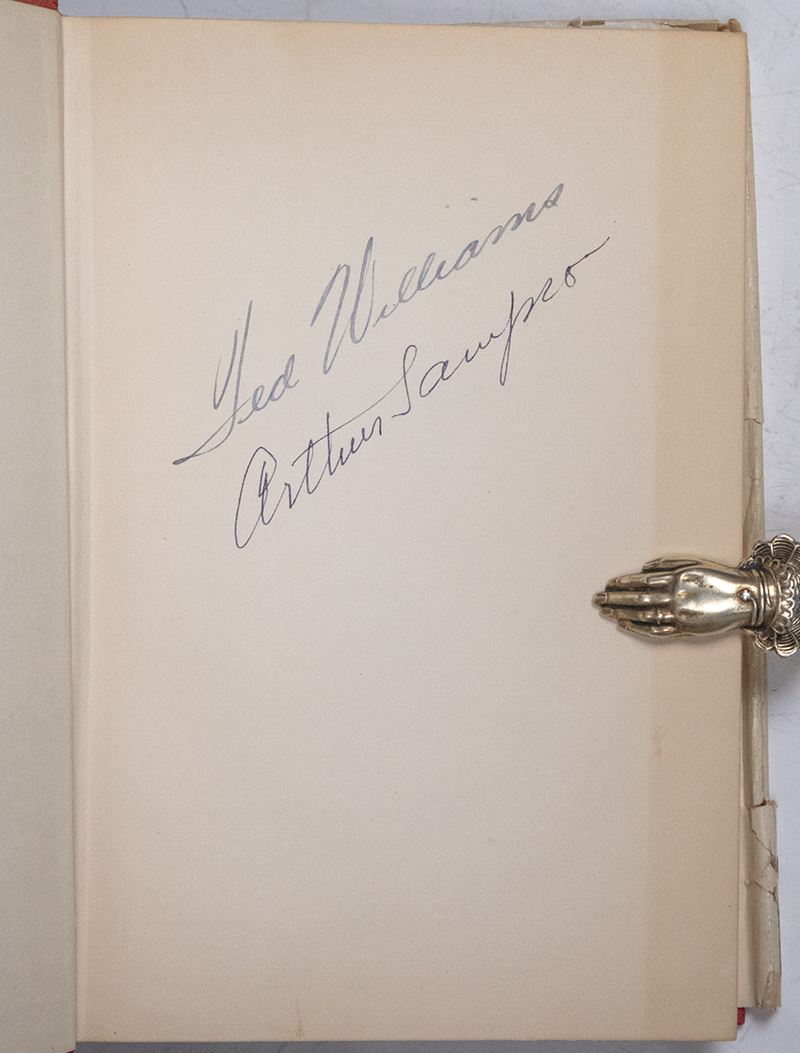 Ted Williams
Arthur Sampso